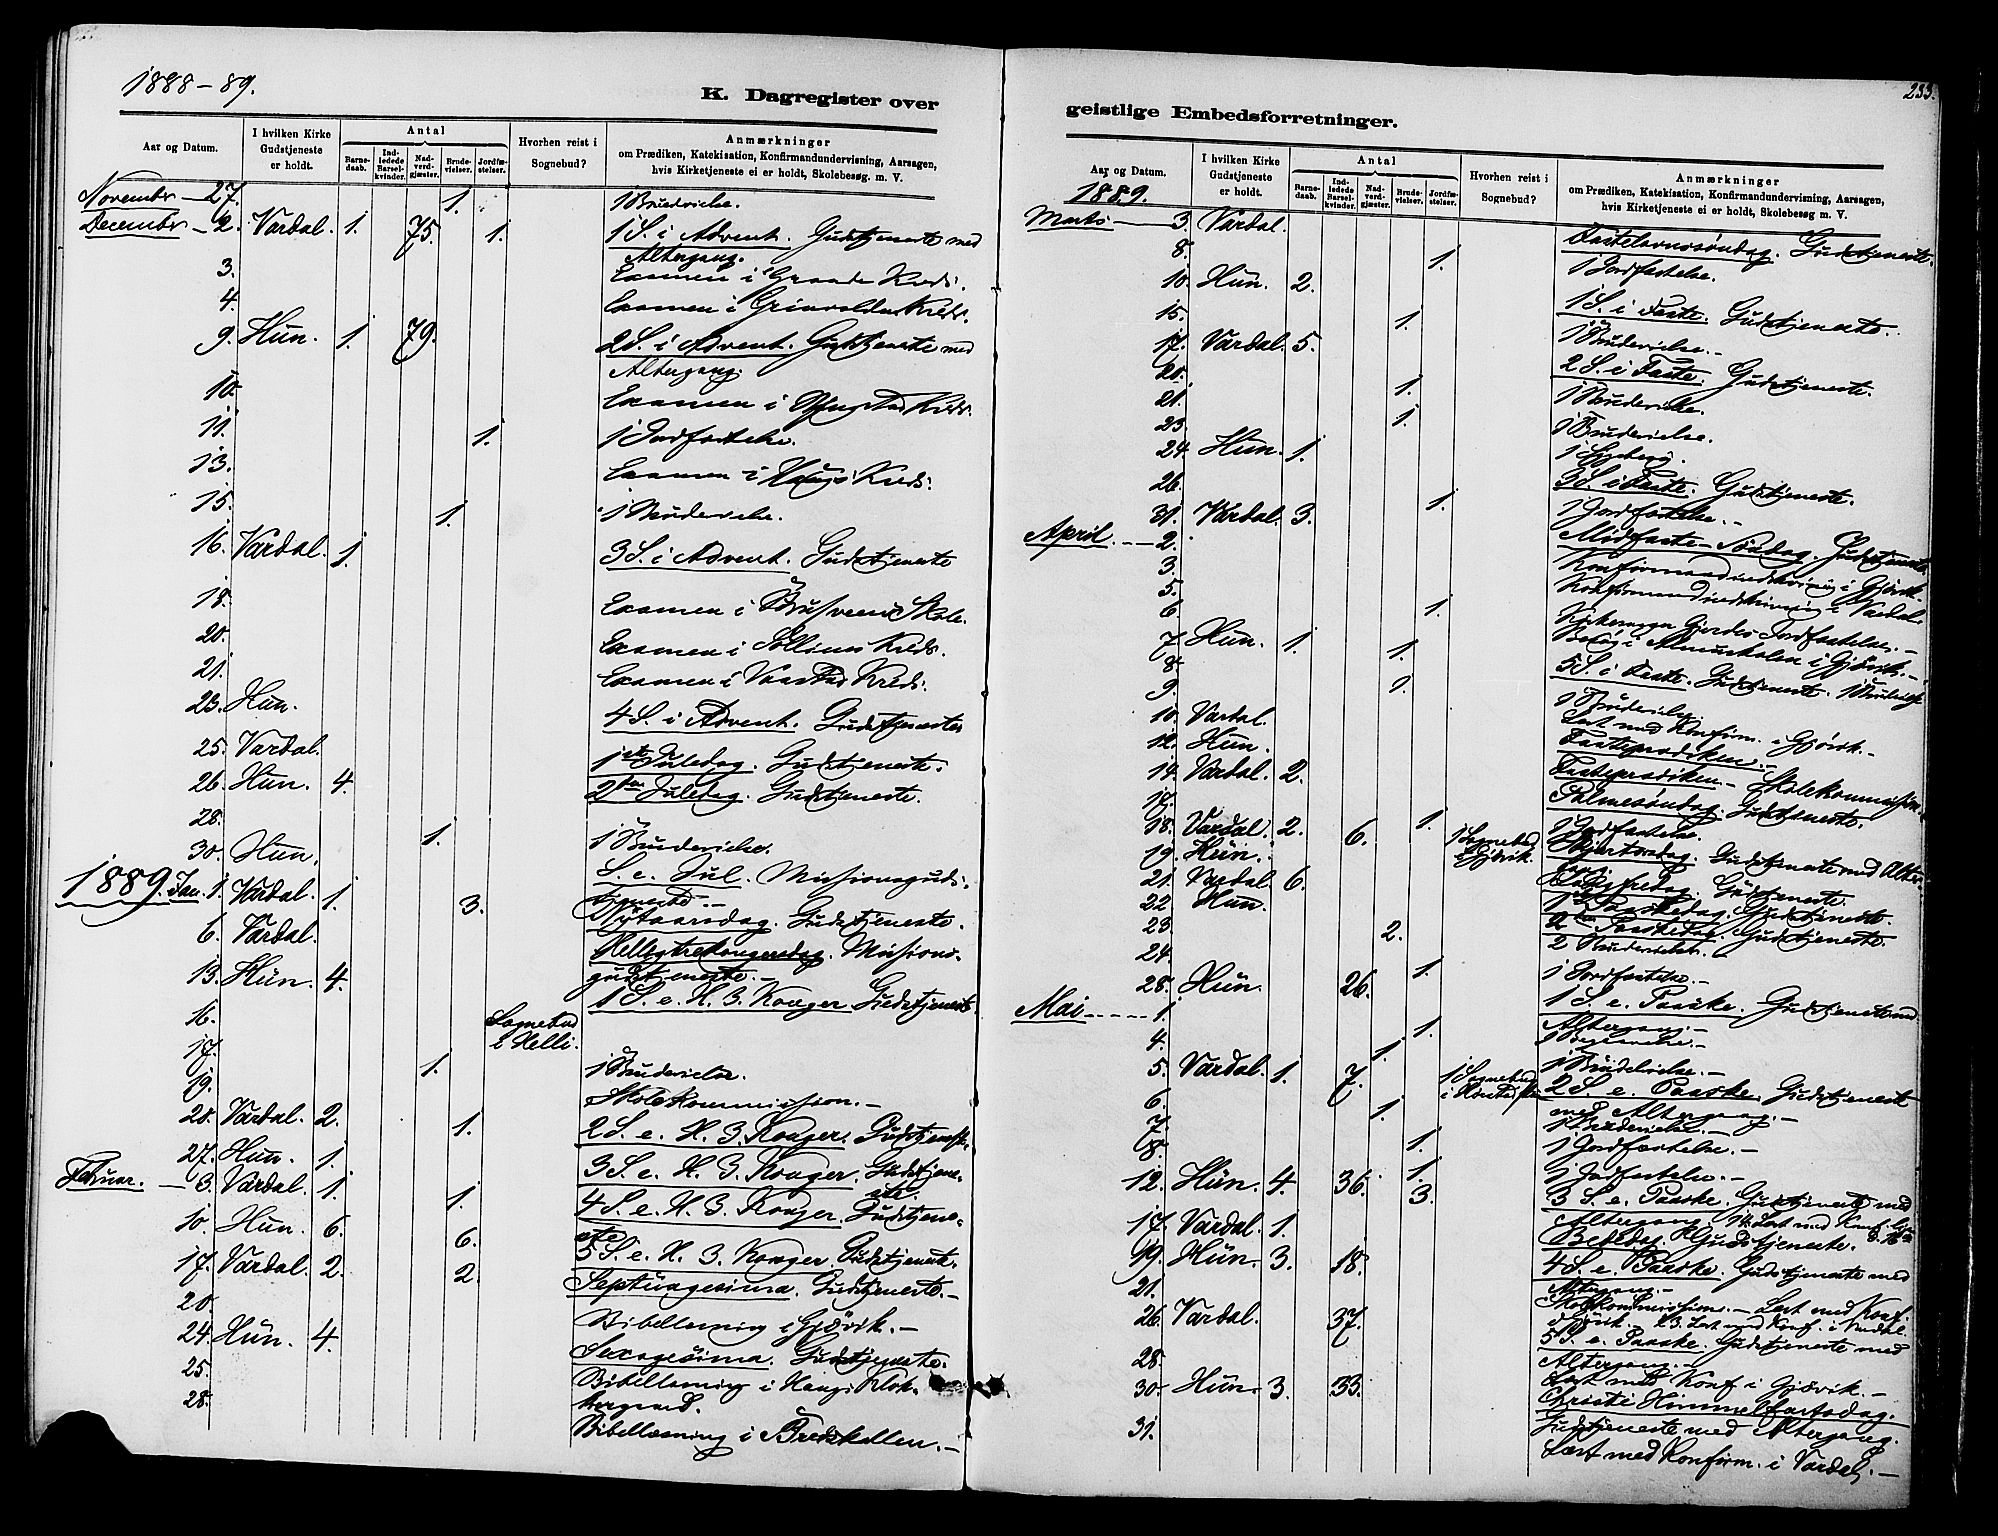 1888-89.
K. Dagregister over
Aar og Datum.
I hvilken Kirke Gudstjeneste er holdt.
Antal
Barnedaab.
Indledede Barselkvinder.
Nadverdgjæster.
Brudevielser.
Jordfæstelser.
Hvorhen reist i Sognebud?
Anmærkninger
om Prædiken, Katekisation, Konfirmandundervisning, Aarsagen,
hvis Kirketjeneste ei er holdt, Skolebesøg m. V.
November - 27. 1. 1 Brudevielse.
December - 2. Vardal. 1. 75. 1. 1 S. i Advent. Gudstjeneste med
Altergang.
3. Examen i Kreds.
4. Examen i Kreds.
9. Hun. 1. 79. 2 S. i Advent. Gudstjeneste med
Altergang.
10. Examen i Kreds.
11. 1. 1 Jordfæstelse.
13. Examen i Haugs Kreds.
15. 1. 1 Brudevielse.
16. Vardal. 1. 3 S. i Advent. Gudstjeneste
18. Examen i Skole.
20. Examen i Kreds.
21. Examen i Kreds.
23. Hun. 4 S. i Advent. Gudstjeneste
25. Vardal. 1ste Juledag. Gudstjeneste.
26. Hun. 4. 2den Juledag. Gudstjeneste.
28. 1. 1 Brudevielse.
30. Hun. S. e. Jul. Missionsguds-
tjeneste.-
1889. Jan. 1. Vardal. 1. 3. Nytaarsdag. Gudstjeneste.
6. Vardal. Helligtrekongersdag. Missions-
gudstjeneste.-
13. Hun. 4. 1 S. e. H. 3. Konger. Gudstjeneste.
16. Sognebud
i Helli.
17. 1. 1 Brudevielse.
19. Skolekommission.-
20. Vardal. 2. 1. 2 S. e. H. 3. Konger. Gudstjeneste.
27. Hun. 1. 3 S. e. H. 3. Konger. Gudstjene-
ste.
Februar. - 3. Vardal. 1. 1. 4 S. e. H. 3. Konger. Gudstjene-
ste.
10. Hun. 6. 6. 5 S. e. H. 3. Konger. Gudstjeneste.
17. Vardal. 2. 2. Septuagesima. Gudstjeneste.-
20. Bibellæsning i Gjøvik.-
24. Hun. 4. Sexagesima. Gudstjeneste.
25. Bibellæsning i Haugs
28. Bibellæsning i
233.
geistlige Embedsforretninger.
Aar og Datum.
I hvilken Kirke Gudstjeneste er holdt.
Antal
Barnedaab.
Indledede Barselkvinder.
Nadverdgjæster.
Brudevielser.
Jordfæstelser.
Hvorhen reist i Sognebud?
Anmærkninger
om Prædiken, Katekisation, Konfirmandundervisning, Aarsagen,
hvis Kirketjeneste ei er holdt, Skolebesøg m. V.
1889.
Marts - 3. Vardal. Fastelavnssøndag. Gudstjeneste.
8. 1. 1 Jordfæstelse.
10. Hun. 2. 1 S. i Faste. Gudstjeneste.
15. 1. 1 Brudevielse.-
17. Vardal. 5. 2 S. i Faste. Gudstjeneste.
20. 1. 1 Brudevielse.
21. 1. 1 Brudevielse.
23.
24. Hun. 1. 3 S. i Faste. Gudstjeneste.
26. 1. 1 Jordfæstelse.-
31. Vardal. 3. Midfaste-Søndag. Gudstjeneste
April. - 2. Konfirmandindskrivning i Gjøvik.
3. Konfirmandindskrivning i Vardal.
5. 1. Jordfæstelse.-
6. Besøg i Almueskolen i Gjøvik.-
7. Hun. 1. 1. 5 S. i Faste. Gudstjeneste. 1 Brudevielse
8. 1. 1 Brudevielse.
9. Læst med Konfirm. i Gjøvik.-
10. Vardal. Fasteprædiken.-
12. Hun. Fasteprædiken.- Skolekommission.
14. Vardal. 2. Palmesøndag. Gudstjeneste.
17. 1. 1 Jordfæstelse.
18. Vardal. 2. 6. 1 Sognebud
Gjøvik. Skjærtorsdag. Gudstjeneste med Alter-
19. Hun. Langfredag. Gudstjeneste.
21. Vardal. 6. 1ste Paaskedag. Gudstjeneste.
22. Hun. 2den Paaskedag. Gudstjeneste.
23. 2. 2 Brudevielser.
24. 1. 1 Jordfæstelse.-
28. Hun. 26. 1 S. e. Paaske. Gudstjeneste med
Altergang.-
Mai - 1. 1. 1 Jordfæstelse.-
4. 1. 1 Brudevielse.-
5. Vardal. 1. 7. 1 Sognebud 2 S. e. Paaske. Gudstjeneste
med Altergang.-
6. 1. 1 Brudevielse.-
7. 1. 1 Jordfæstelse.-
8. 1. 1 Jordfæstelse.-
12. Hun. 4. 36. 3. 3 S. e. Paaske. Gudstjeneste med
Altergang. 14. Læst med Konf.
17. Vardal. 1. Bededag. Gudstjeneste.
19. Hun. 3. 18. 4 S. e. Paaske. Gudstjeneste med
Altergang.-
21. Skolekommission.- Læst med Konf.
i Gjøvik.- 23. Læst med Konf. i Vardal.
26. Vardal. 37. 5 S. e. Paaske. Gudstjeneste med
Altergang.-
28. Læst med Konf i Gjøvik.-
30. Hun. 3. 33. Christi Himmelfartsdag.
Gudstjeneste med Altergang.
31. Læst med Konfirm. i Vardal.-